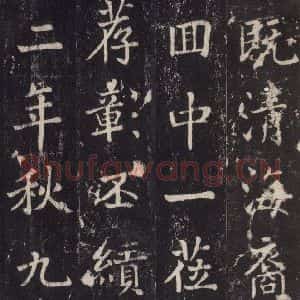 既清海裔
回中一莅
荐彰丕績
二年秋九
Shufawang.Cn